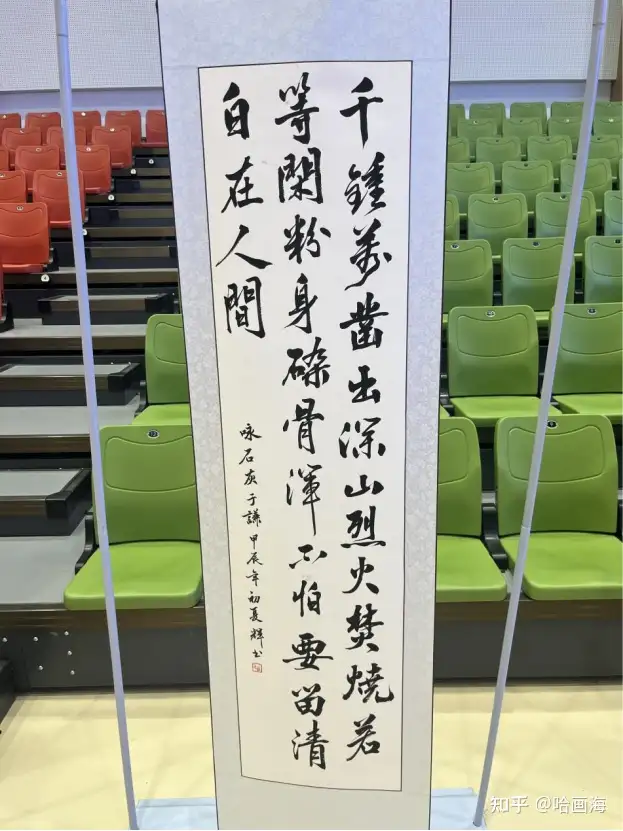 千鍾萬凿出深山烈火焚燒若
等閑粉身碎骨渾不怕要留清
白在人間
咏石灰于謙甲辰年初夏輝书
知乎 @哈画海